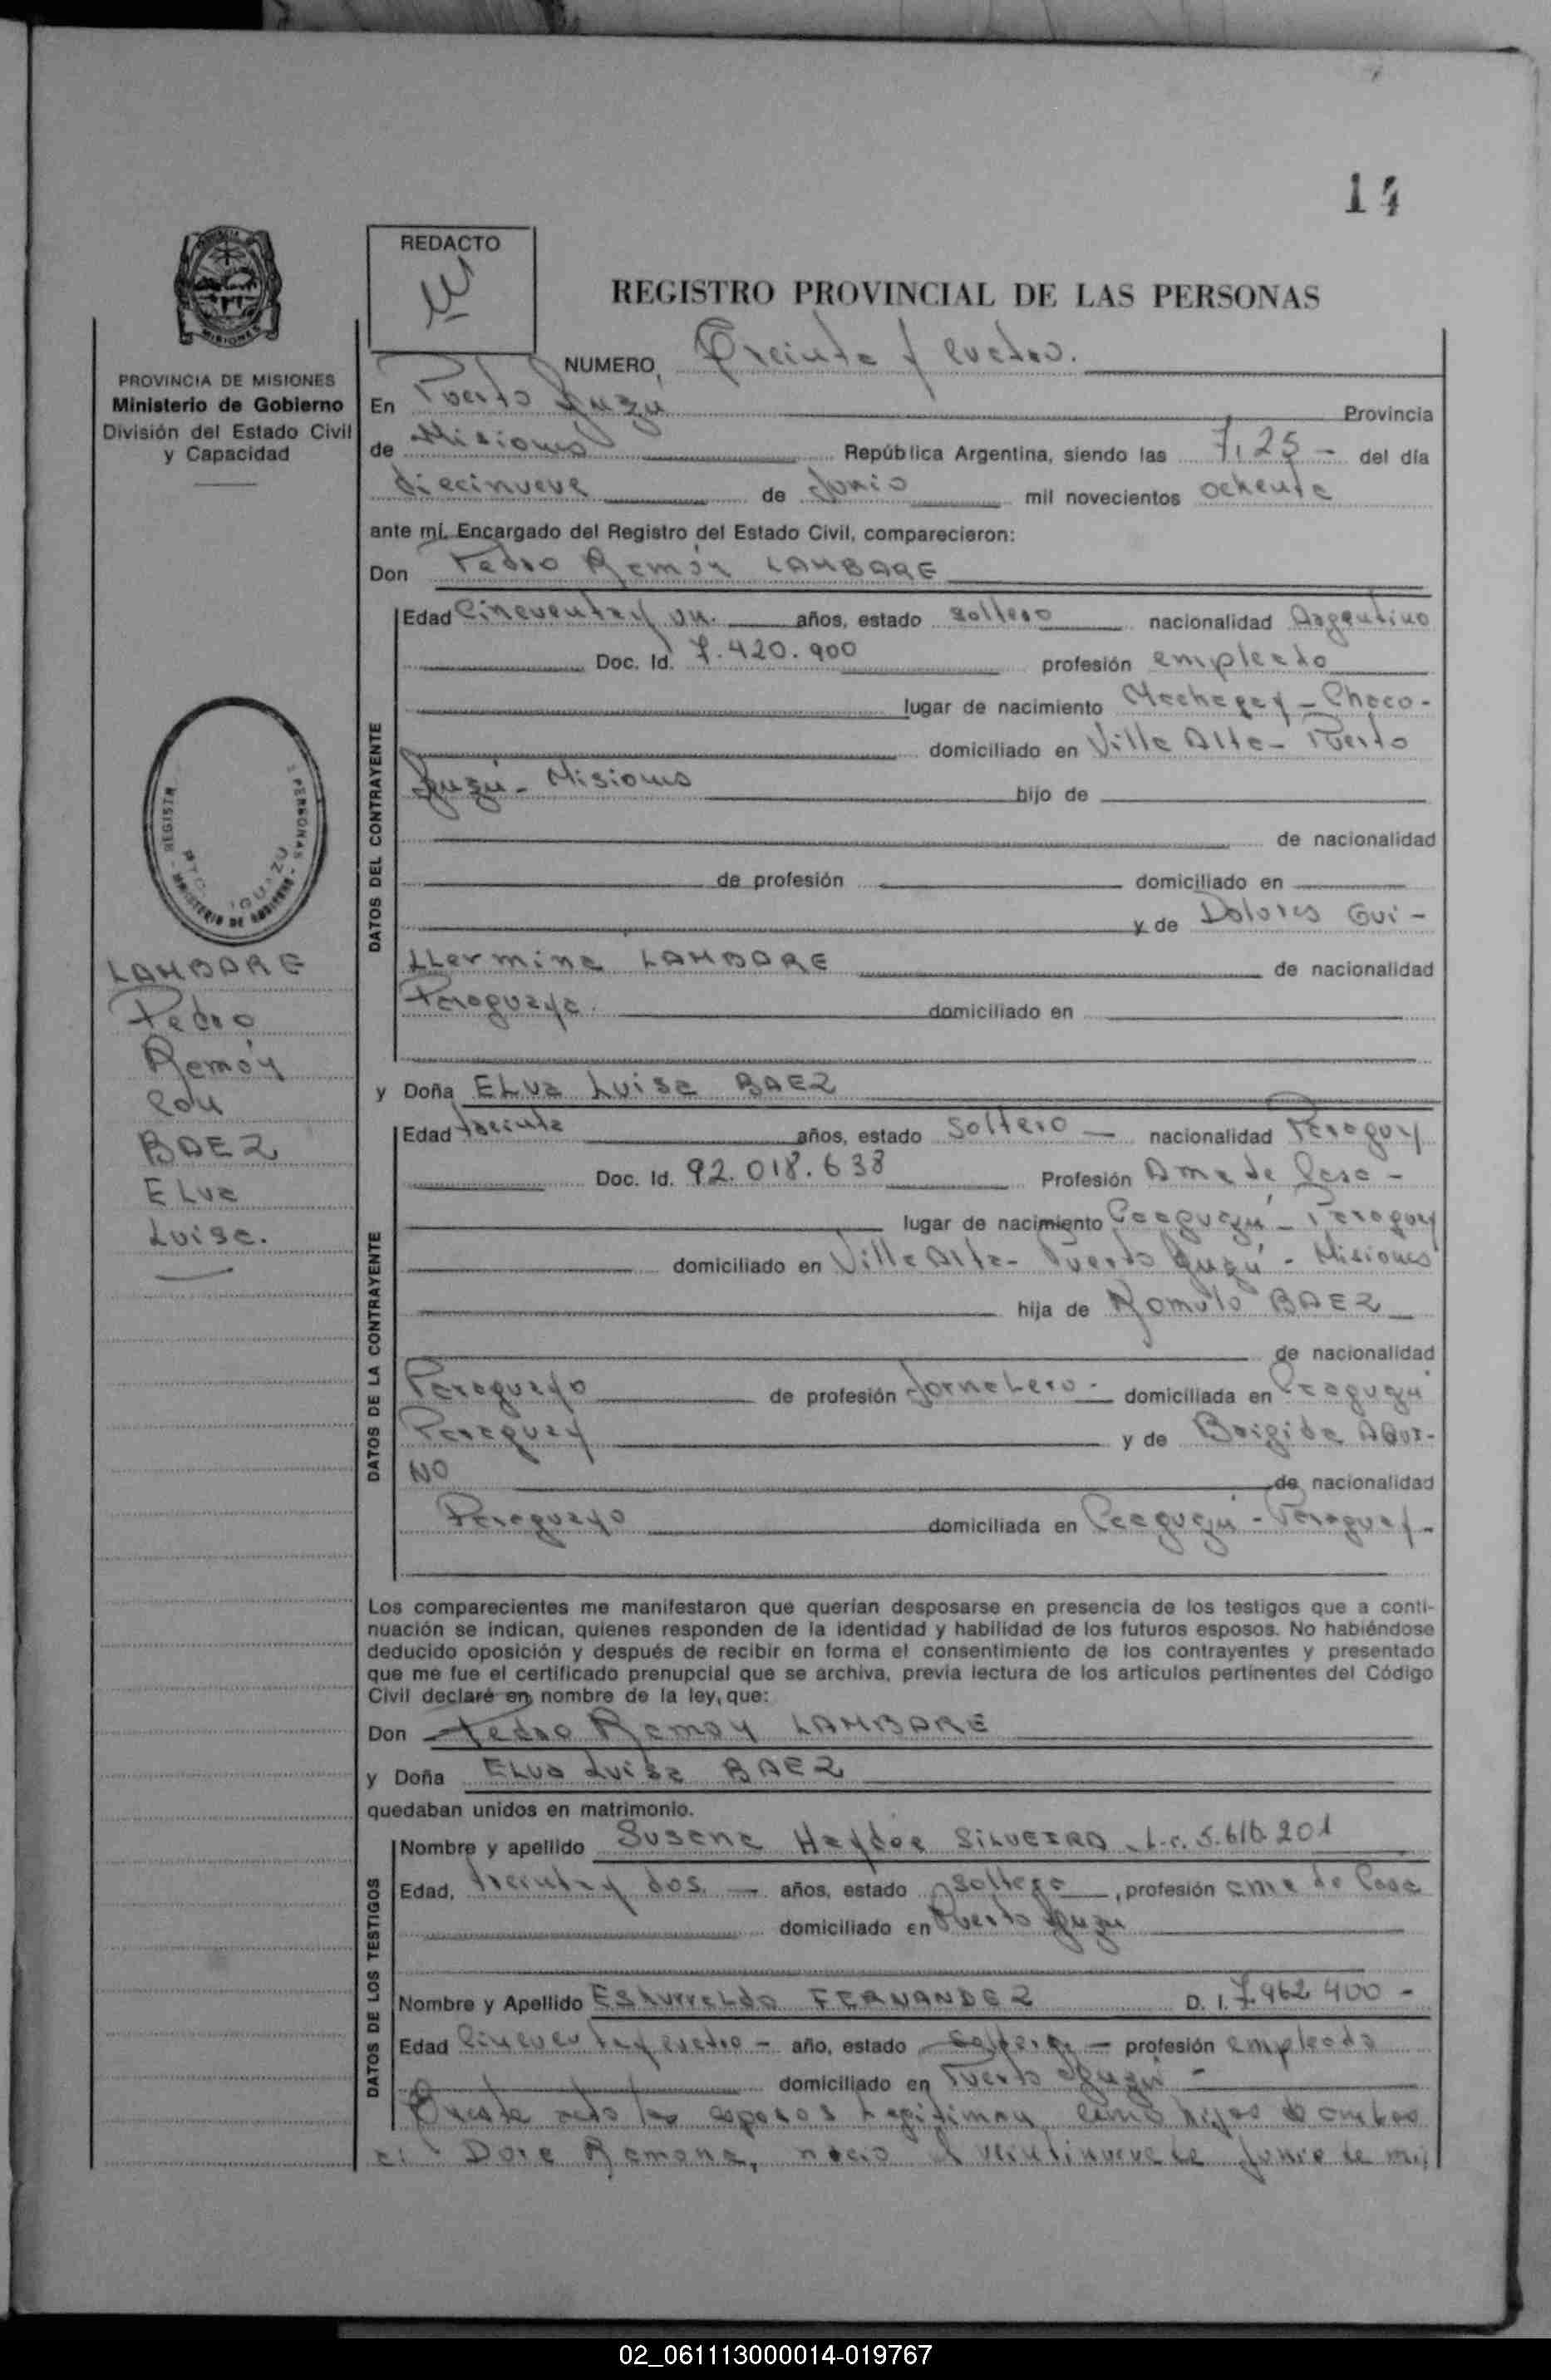 14
REDACTO
REGISTRO PROVINCIAL DE LAS PERSONAS
NUMERO, Treinta y cuatro.
PROVINCIA DE MISIONES
Ministerio de Gobierno
División del Estado Civil
y Capacidad
En Puerto Iguazú Provincia
de Misiones República Argentina, siendo las 7,25 - del día
diecinueve de Junio mil novecientos ochenta
ante mí. Encargado del Registro del Estado Civil, comparecieron:
Don Pedro Ramón LAMBARE
DATOS DEL CONTRAYENTE
Edad Cincuenta y un años, estado soltero nacionalidad Argentino
Doc. Id. 7.420.900 profesión empleado
lugar de nacimiento Machagay - Chaco -
domiciliado en Villa Alta - Puerto
Iguazú - Misiones hijo de
de nacionalidad
de profesión domiciliado en
y de Dolores Gui -
LLermina LAMBARE de nacionalidad
Paraguaya. domiciliado en
LAMBARE
Pedro
Ramón
con
BAEZ
ELva
Luisa.
y Doña ELva Luisa BAEZ
DATOS DE LA CONTRAYENTE
Edad treinta años, estado soltero - nacionalidad Paraguay
Doc. Id. 92.018.638 Profesión Ama de Casa -
lugar de nacimiento Caaguazú - Paraguay
domiciliado en Villa Alta - Puerto Iguazú - Misiones
hija de Romulo BAEZ
de nacionalidad
Paraguayo de profesión Jornalero - domiciliada en Caaguazú
Paraguay y de Brigida AQUI-
NO de nacionalidad
Paraguayo domiciliada en Caaguazú - Paraguay -
Los comparecientes me manifestaron que querían desposarse en presencia de los testigos que a conti-
nuación se indican, quienes responden de la identidad y habilidad de los futuros esposos. No habiéndose
deducido oposición y después de recibir en forma el consentimiento de los contrayentes y presentado
que me fue el certificado prenupcial que se archiva, previa lectura de los artículos pertinentes del Código
Civil declaré en nombre de la ley, que:
Don Pedro Ramón LAMBARE
y Doña ELva Luisa BAEZ
quedaban unidos en matrimonio.
DATOS DE LOS TESTIGOS
Nombre y apellido Susana Haydee SILVEIRA L.c. 5.616.201
Edad, treinta y dos - años, estado soltera, profesión ama de Casa
domiciliado en Puerto Iguazú
Nombre y Apellido FERNANDEZ D. I. 7.962.400 -
Edad Cincuenta y cuatro - año, estado - profesión empleado
domiciliado en Puerto Iguazú -
En este acto los esposos Legitiman como hijos de ambos
a: Dora Ramona, nacio el veintinueve de Junio de mil
02_061113000014-019767